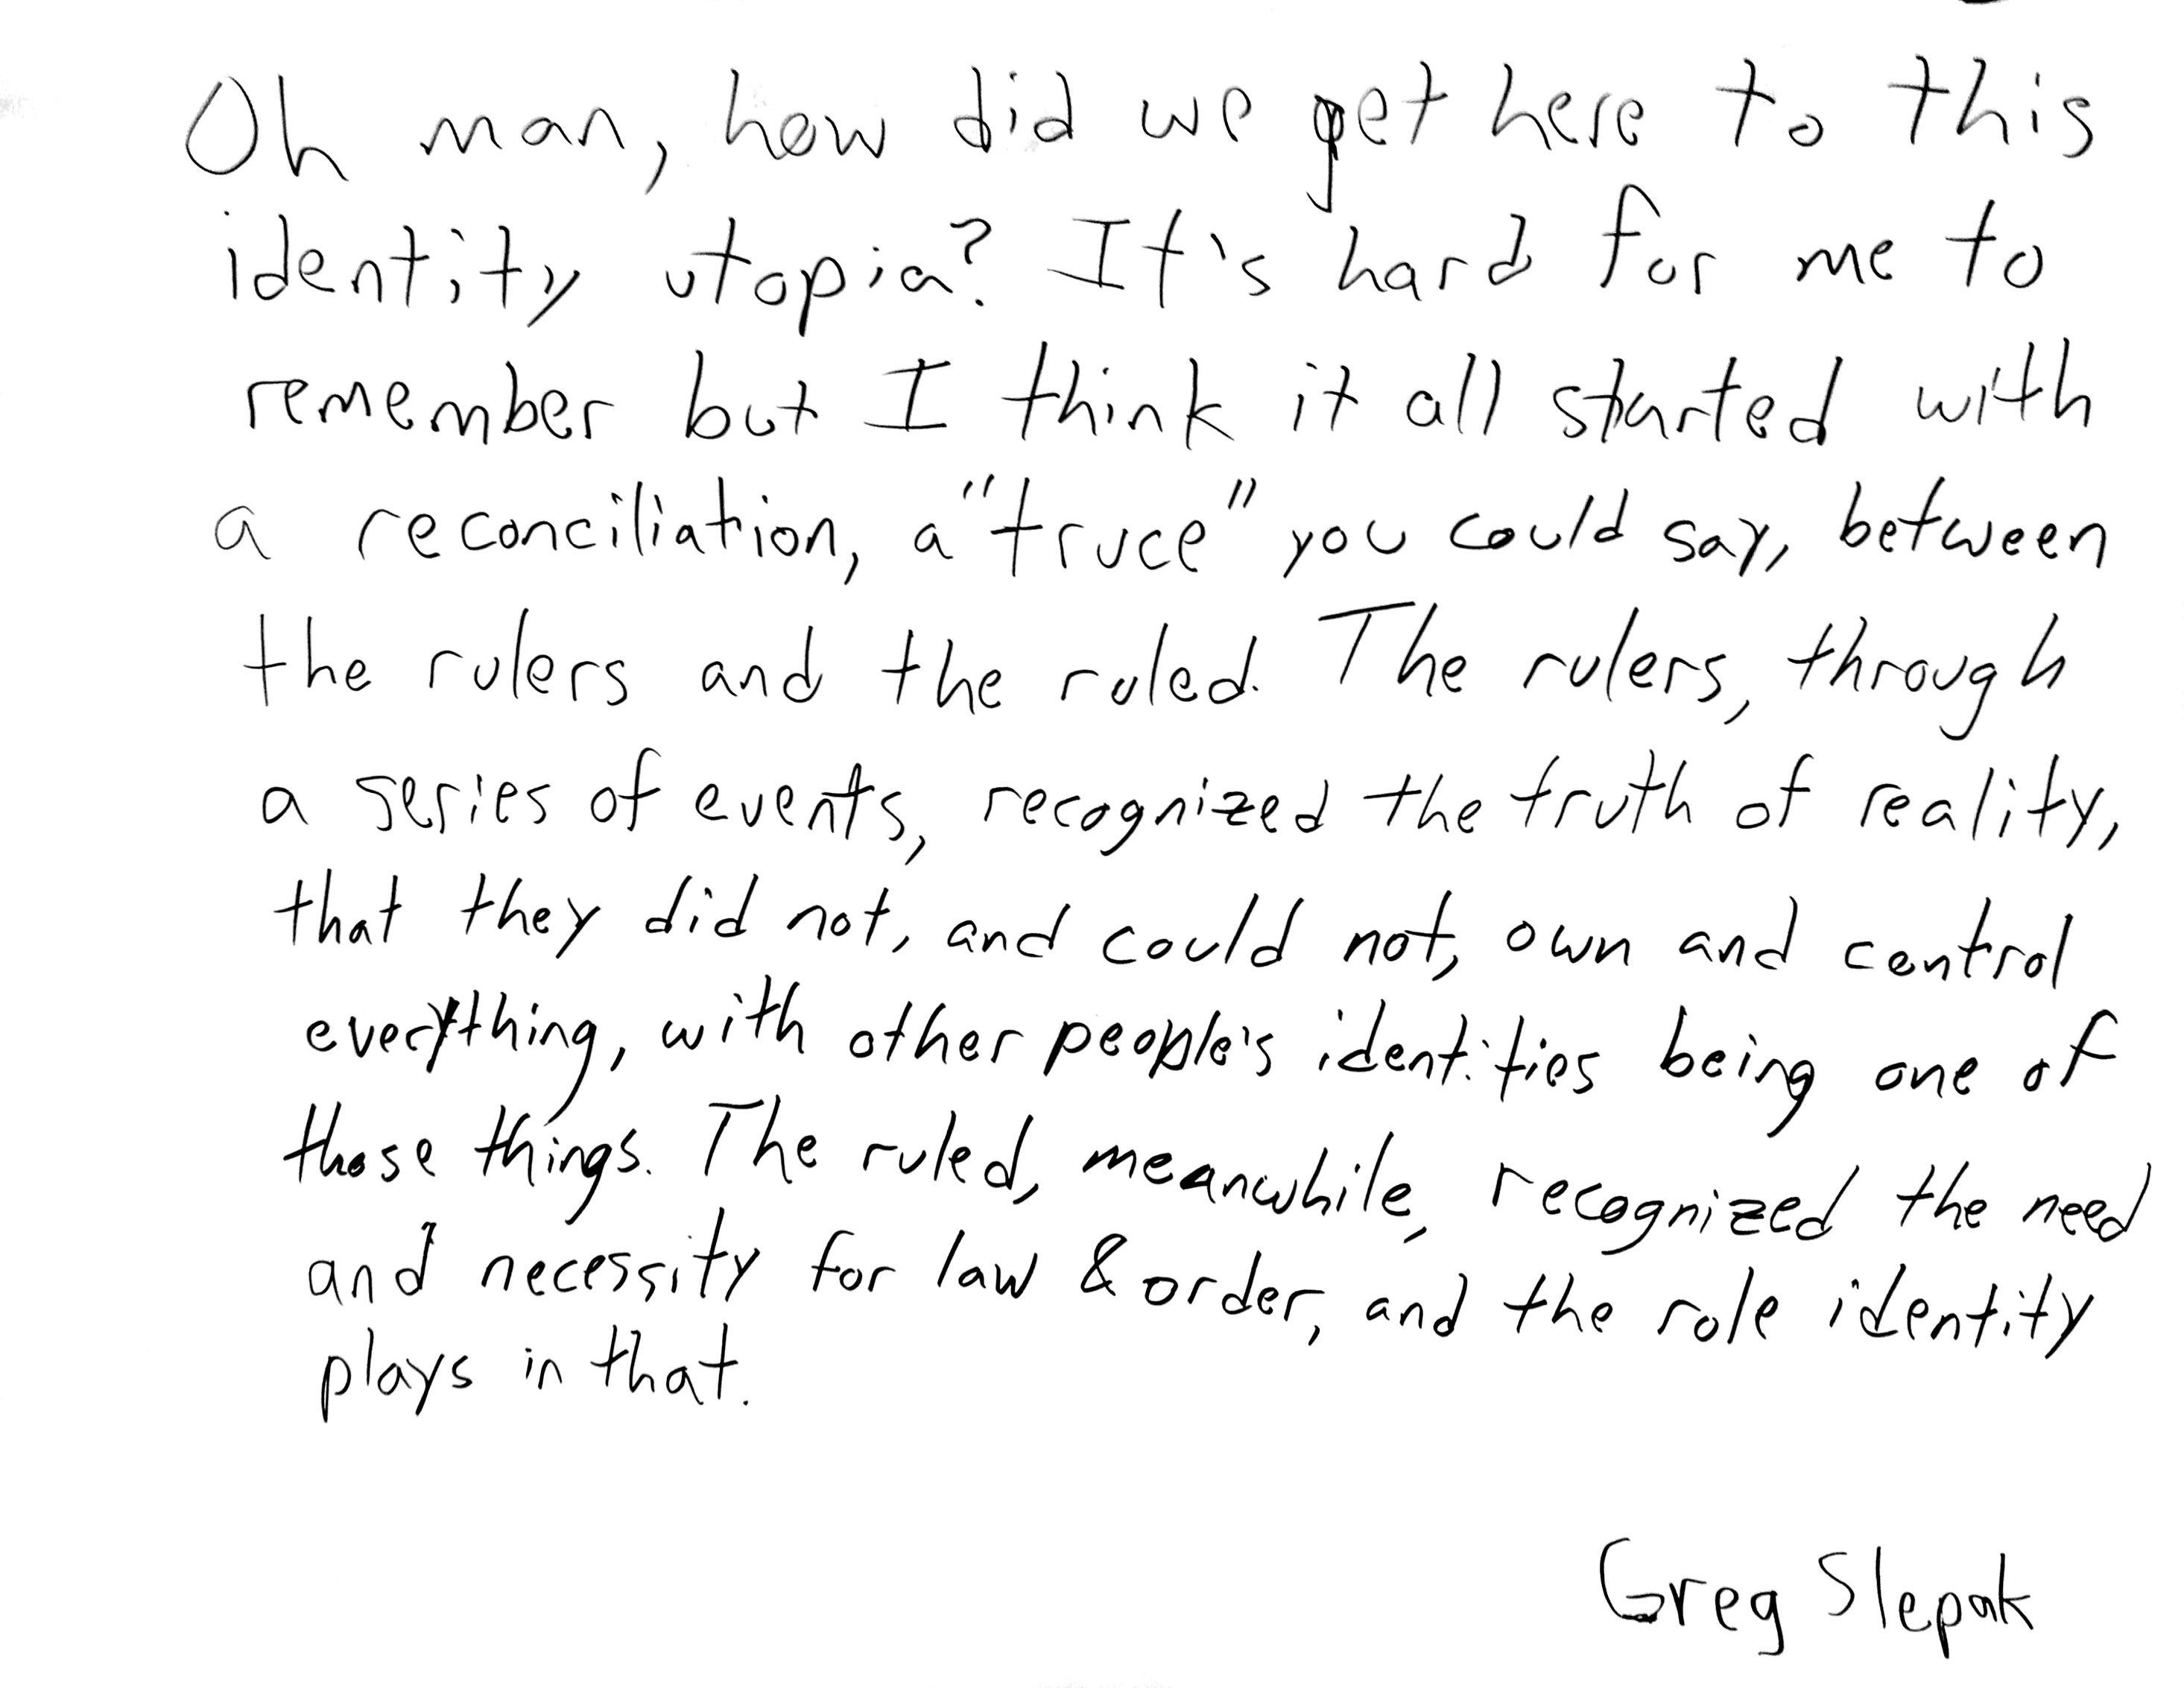 Oh man, how did we get here to this
identity utopia? It's hard for me to
remember but I think it all started with
a reconciliation, a "truce" you could say, between
the rulers and the ruled. The rulers, through
a series of events, recognized the truth of reality,
that they did not, and could not, own and control
everything, with other people's identities being one of
those things. The ruled, meanwhile, recognized the need
and necessity for law & order, and the role identity
plays in that.
Greg Slepak